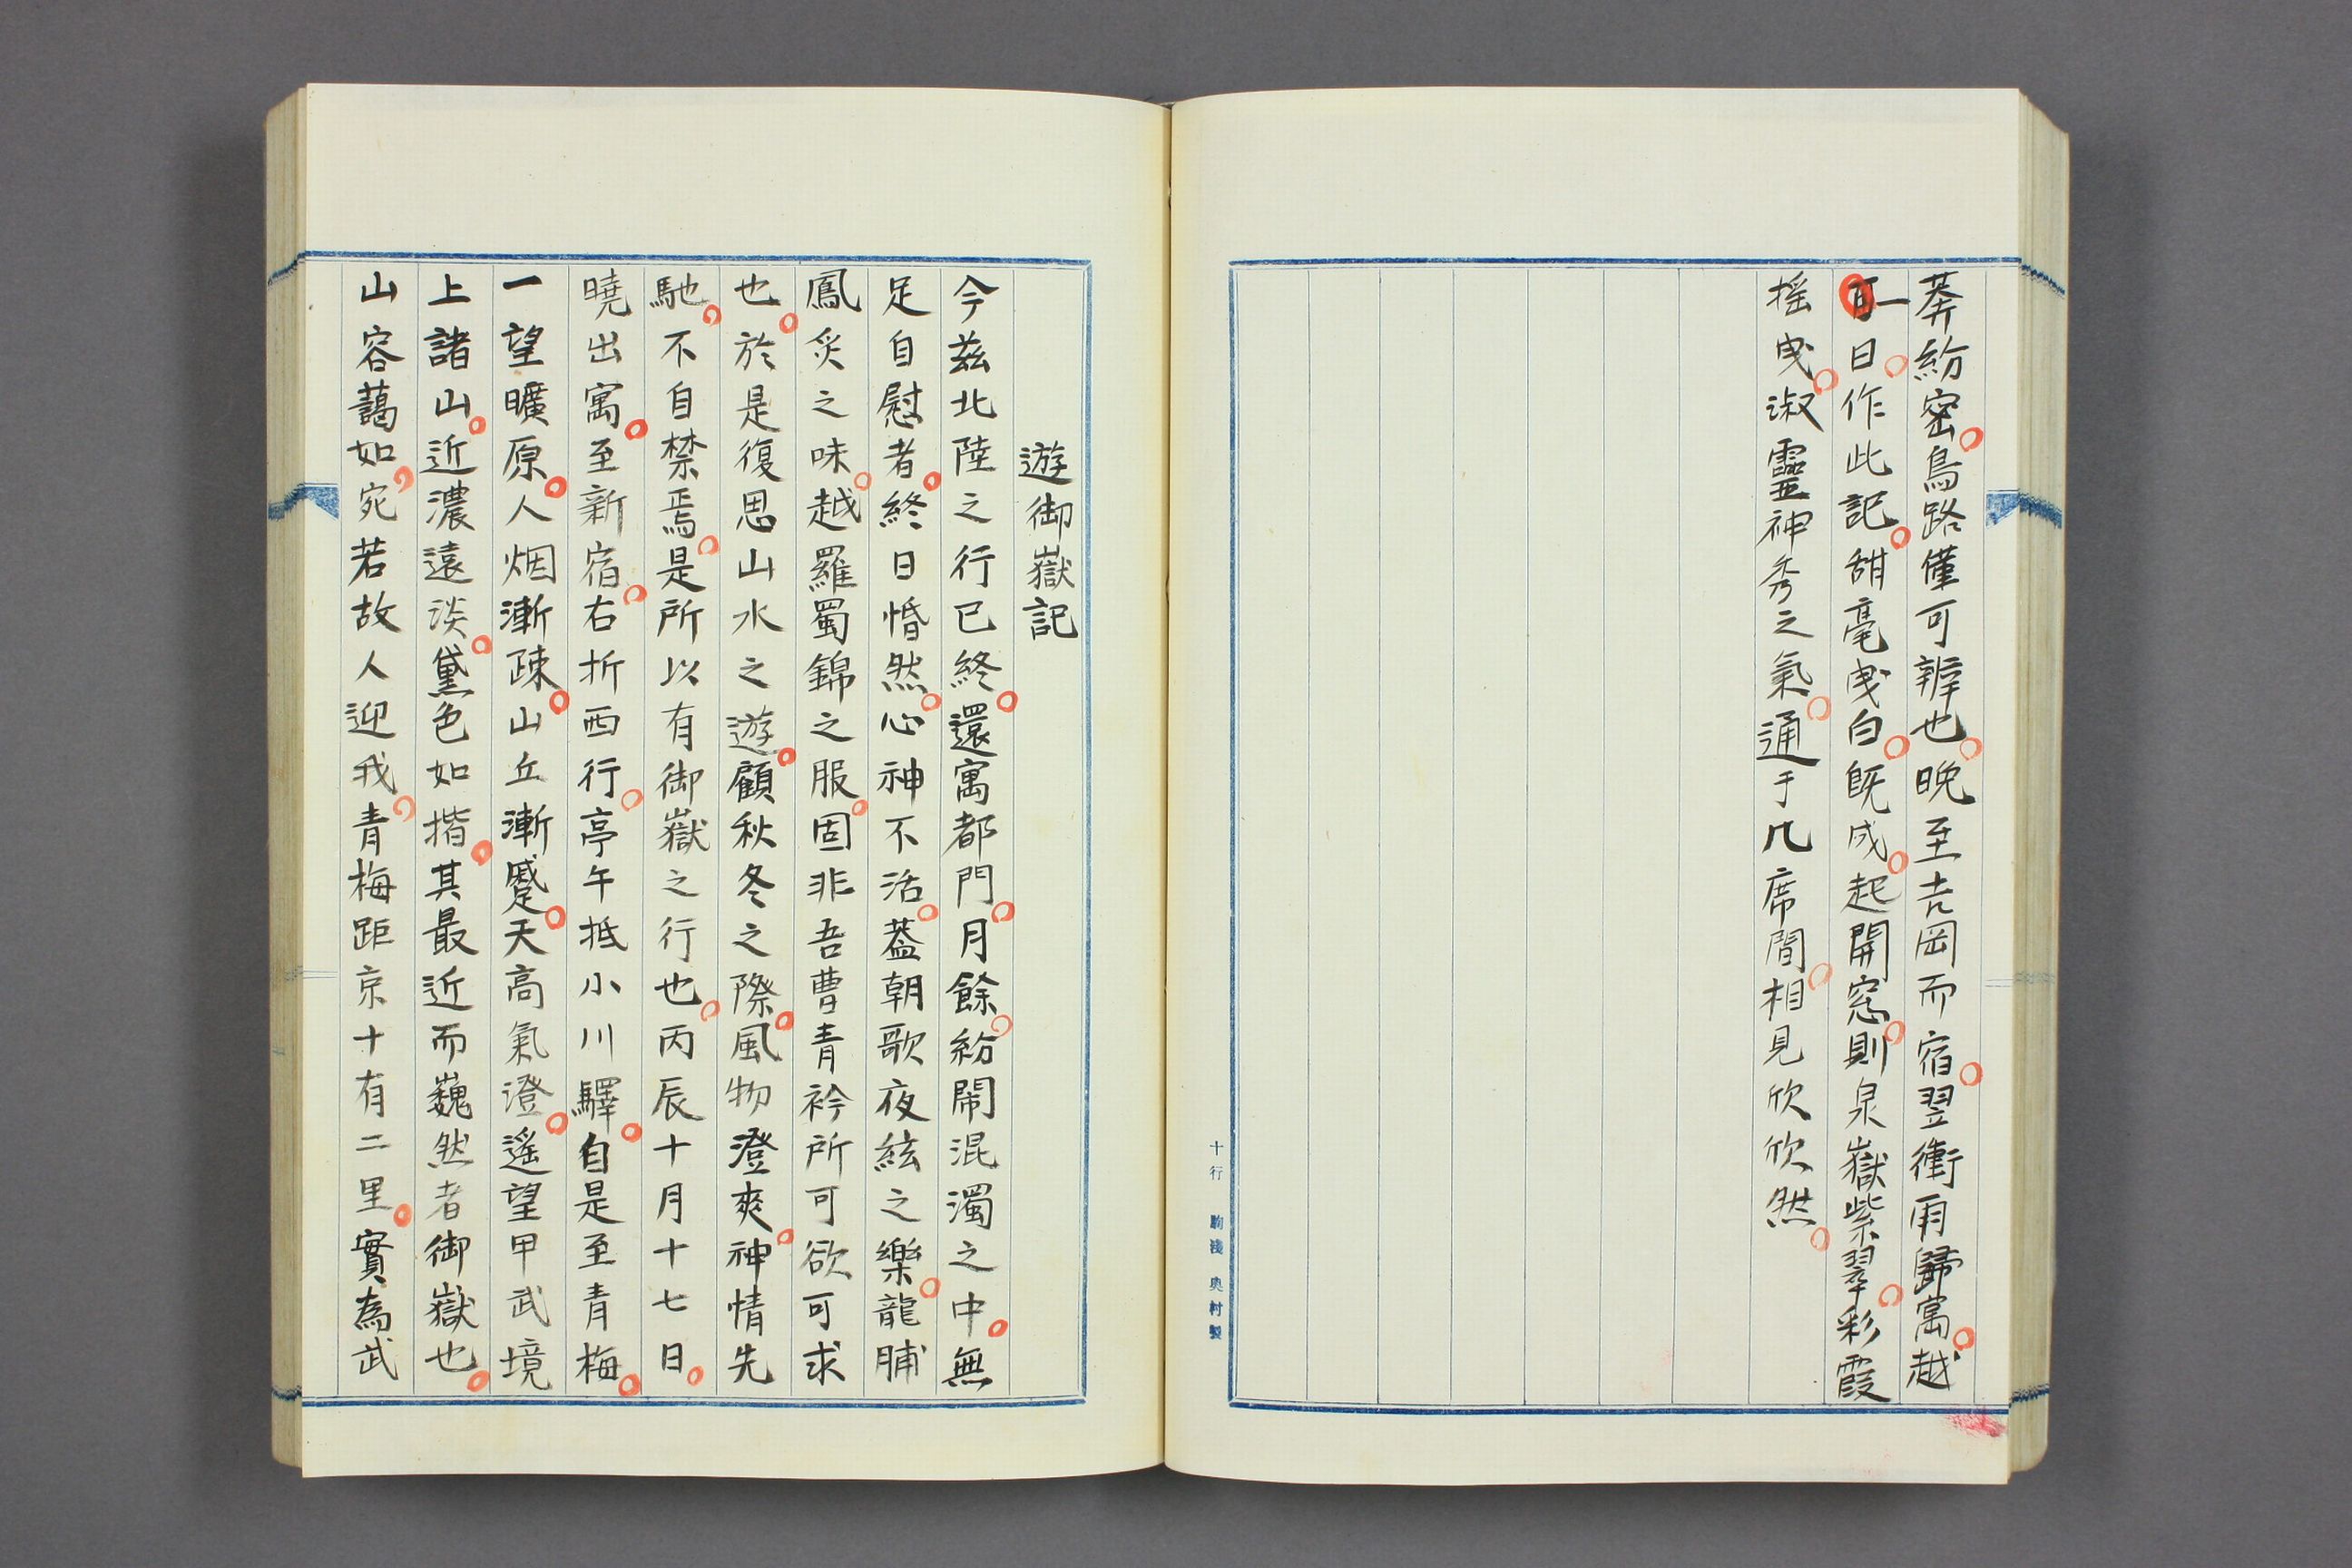 莽紛密。鳥路僅可辨也。晚至吉岡而宿。翌衝雨歸寓。越
一日。作此記。甜毫曳白。既成。起開窓。則泉嶽紫翠。彩霞
搖曳。淑靈神秀之氣。通于几席間。相見欣欣然。
十行 駒淺 奥村製
遊御嶽記
今茲北陸之行已終。還寓都門。月餘。紛鬧混濁之中。無
足自慰者。終日惛然。心神不活。蓋朝歌夜絃之樂。龍脯
鳳炙之味。越羅蜀錦之服。固非吾曹青衿所可欲可求
也。於是復思山水之遊。顧秋冬之際。風物澄爽。神情先
馳。不自禁焉。是所以有御嶽之行也。丙辰十月十七日。
曉出寓。至新宿。右折西行。亭午抵小川驛。自是至青梅。
一望曠原。人烟漸疎。山丘漸蹙。天高氣澄。遙望甲武境
上諸山。近濃遠淡。黛色如揩。其最近而巍然者御嶽也。
山容藹如。宛若故人迎我。青梅距京十有二里。實為武